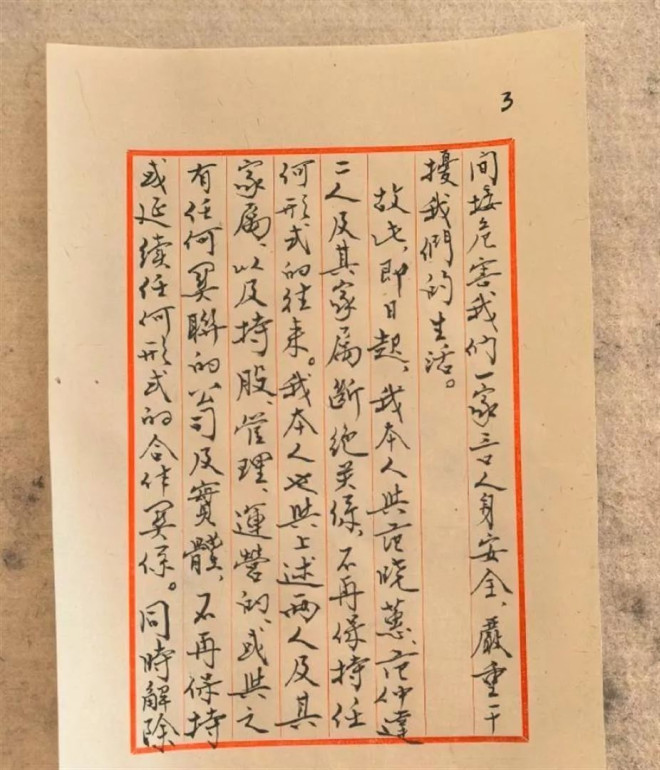 3
间接危害我们一家三口人身安全、嚴重干
擾我們的生活。
故此，即日起，我本人與范晓蕙、范仲達
二人及其家属断绝关係，不再保持任
何形式的往来。我本人也與上述两人及其
家属、以及持股、管理、運營的、或與之
有任何関聯的公司及實體，不再保持
或延續任何形式的合作関係。同時解除